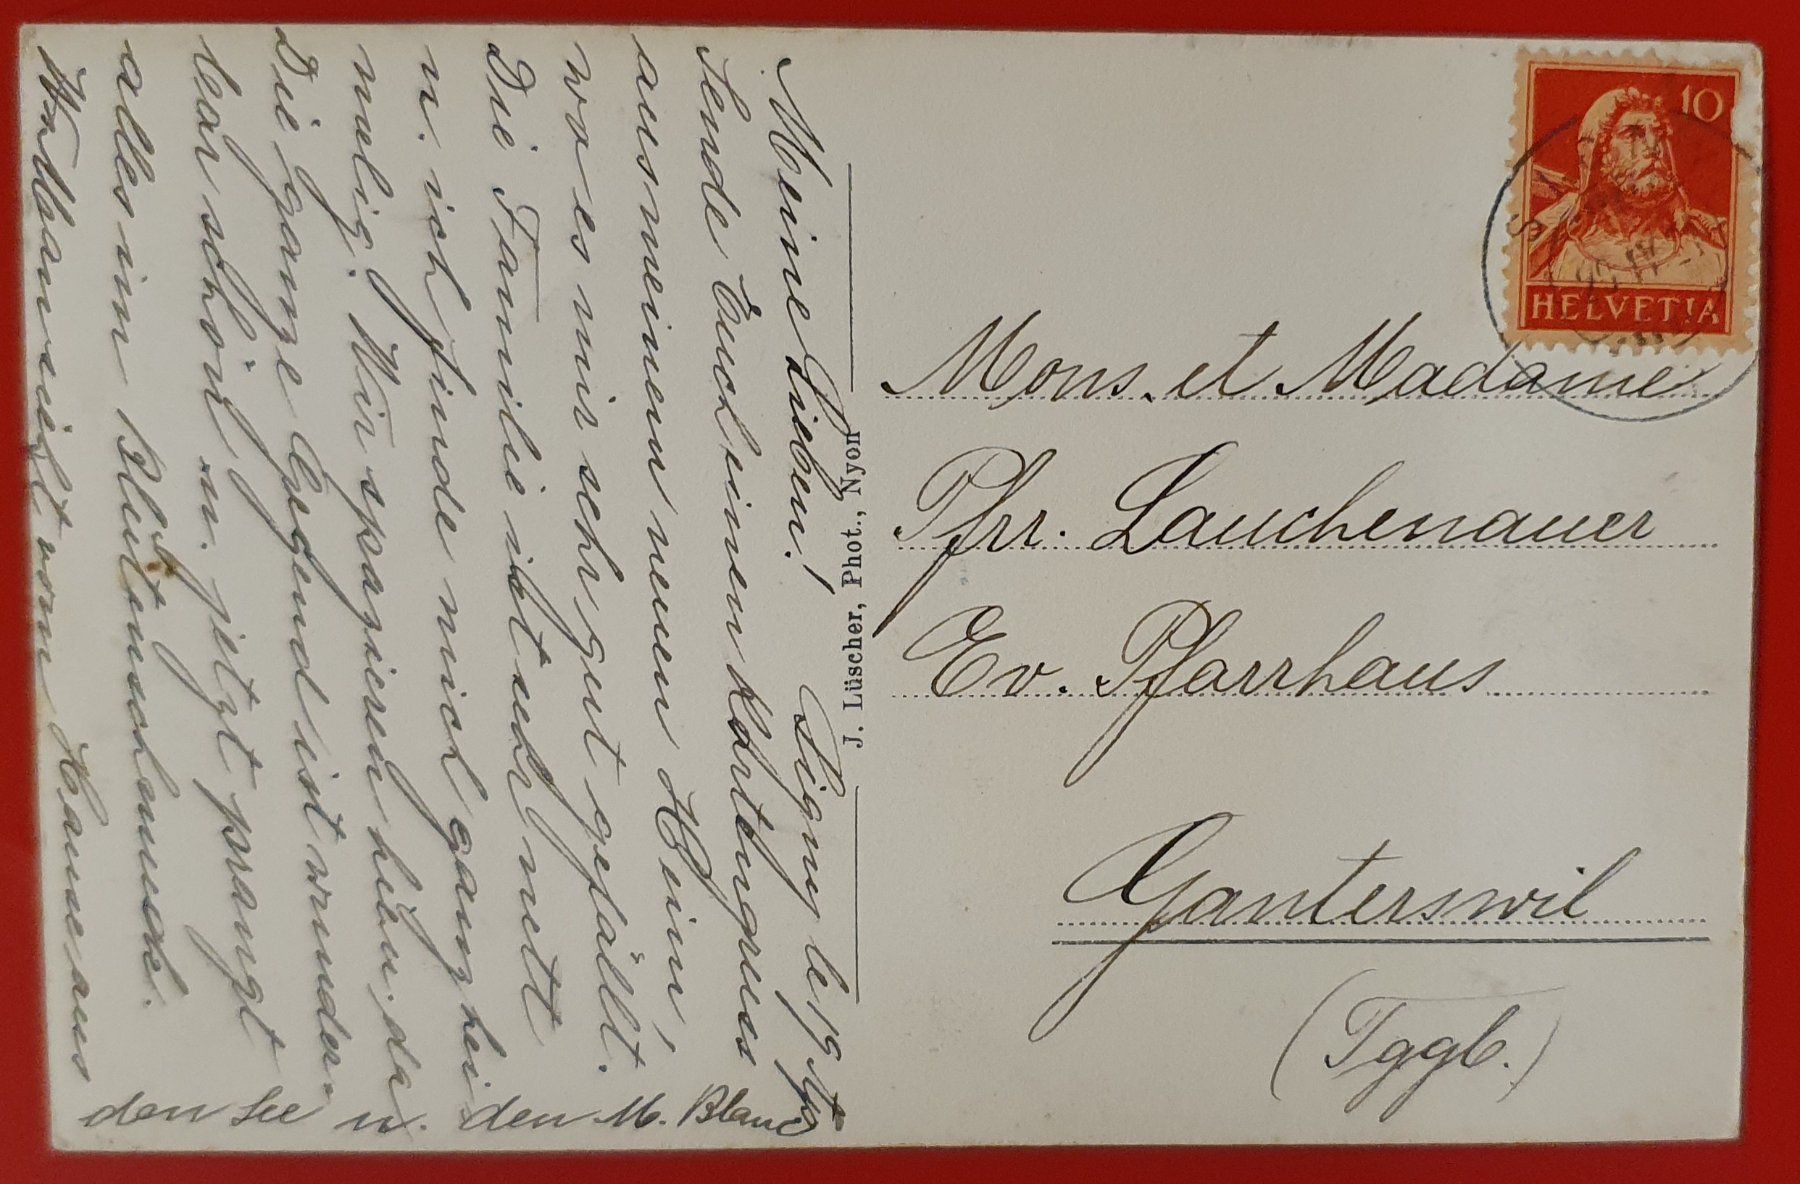 Meine Lieben! Signy le 19 Apr.
Sende Euch einen Kartengruss
aus meinem neuen Heim,
wo es mir sehr gut gefällt.
Die Familie ist sehr nett
u. ich finde mich ganz hei
melig. Wir spazieren hier, da
Die ganze Gegend ist wunder-
bar schön u. jetzt prangt
alles im Blütenschmuck.
Man sieht vom Hause aus
den See u. den M. Blanc
J. Lüscher, Phot., Nyon
10
HELVETIA
Mons. et Madame
Pfrr. Lauchenauer
Ev. Pfarrhaus
Ganterswil
(Tggb.)